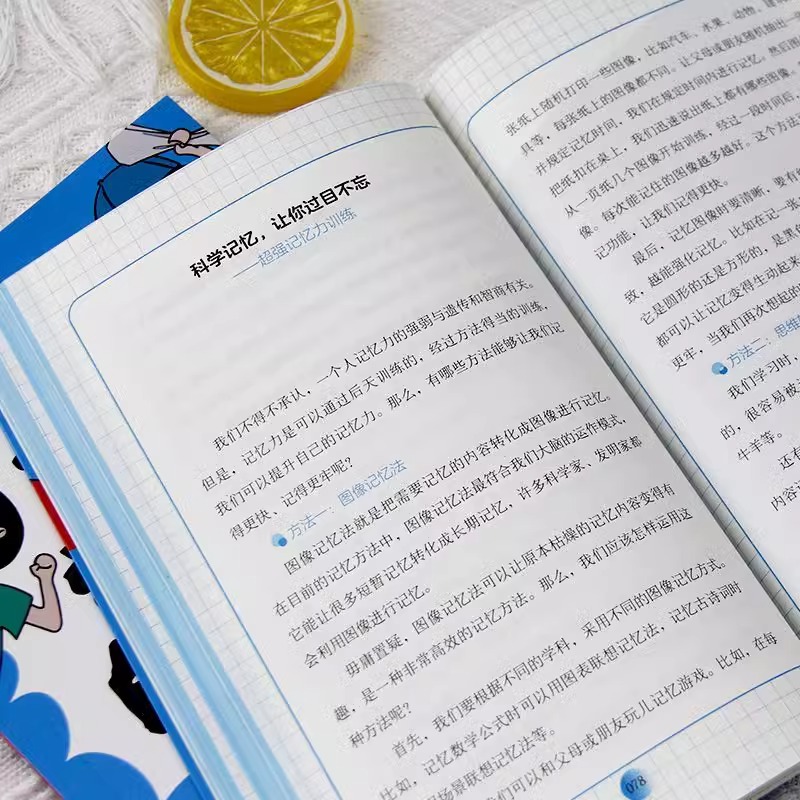 科学记忆，让你过目不忘
——超强记忆力训练
我们不得不承认，一个人记忆力的强弱与遗传和智商有关。
但是，记忆力是可以通过后天训练的，经过方法得当的训练，
我们可以提升自己的记忆力。那么，有哪些方法能够让我们记
得更快、记得更牢呢？
方法一：图像记忆法
图像记忆法就是把需要记忆的内容转化成图像进行记忆。
在目前的记忆方法中，图像记忆法最符合我们大脑的运作模式，
它能让很多短暂记忆转化成长期记忆，许多科学家、发明家都
会利用图像进行记忆。
毋庸置疑，图像记忆法可以让原本枯燥的记忆内容变得有
趣，是一种非常高效的记忆方法。那么，我们应该怎样运用这
种方法呢？
首先，我们要根据不同的学科，采用不同的图像记忆方式。
比如，记忆数学公式时可以用图表联想记忆法，记忆古诗词时
场景联想记忆法等。
们可以和父母或朋友玩儿记忆游戏。比如，在每
078
张纸上随机打印一些图像，比如汽车、水果、动物、
具等，每张纸上的图像都不同。让父母或朋友随机抽出一
并规定记忆时间，我们在规定时间内进行记忆，然后
把纸扣在桌上，我们迅速说出纸上都有哪些图像。
从一页纸几个图像开始训练，经过一段时间后，
像。每次能记住的图像越多越好。这个方法
记功能，让我们记得更快。
最后，记忆图像时要清晰，要有
致，越能强化记忆。比如在记一张
它是圆形的还是方形的，是黑
都可以让记忆变得生动起来
更牢，当我们再次想起的
方法二：思维
我们学习时，
的，很容易被
牛羊等。
还有
内容